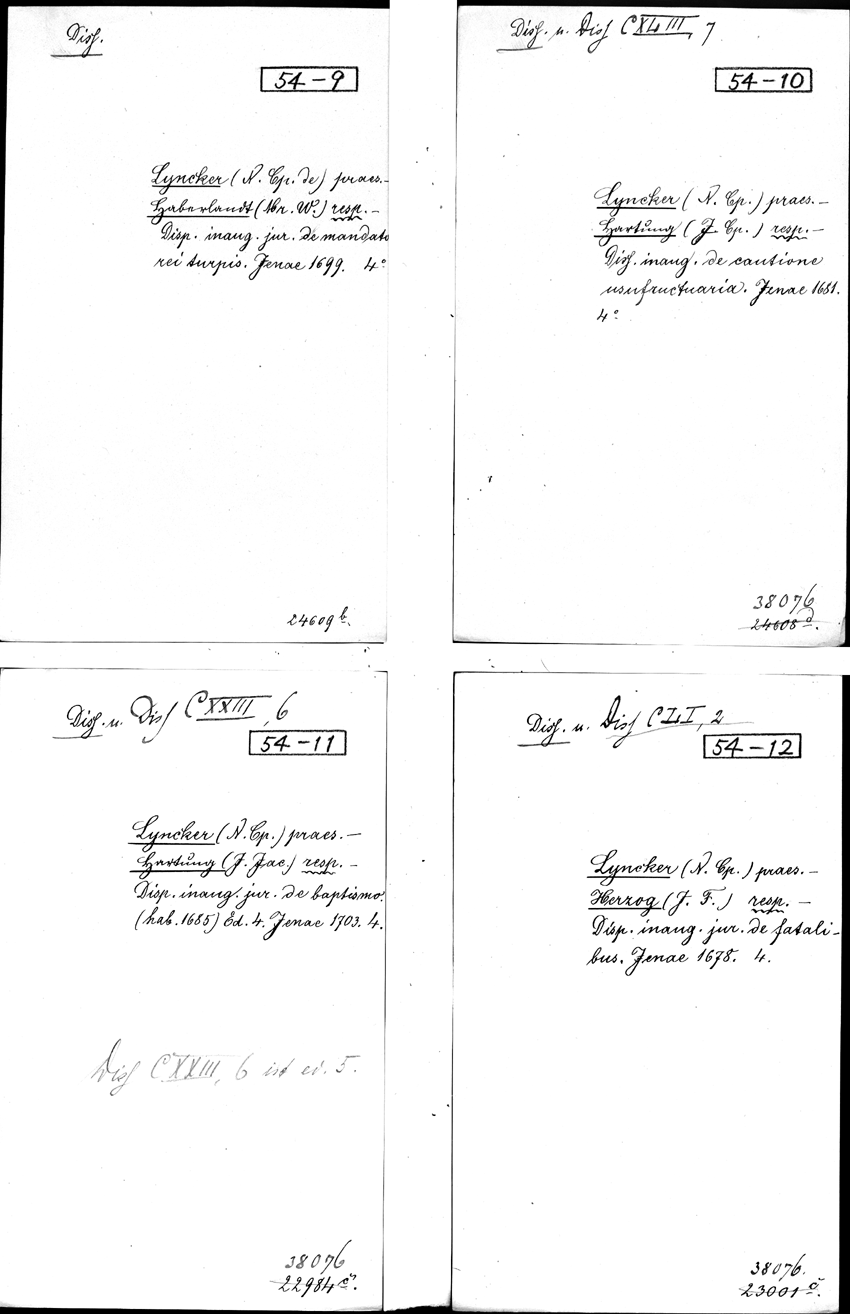 Diss.
54-9
Lyncker (N. Cp. de) praes.-
Haberlandt (Mr. W.) resp.-
Disp. inaug. jur. de mandato
rei turpis. Jenae 1699. 4°
24609 b.
Diss. u. Diss CXLIII, 7
54-10
Lyncker (N. Cp.) praes.-
Hartung (J. Cp.) resp.-
Diss. inaug. de cautione
usufructuaria. Jenae 1681.
4°
38076
24608 d.
Diss. u. Diss CXXIII, 6
54-11
Lyncker (N. Cp.) praes.-
Hartung (J. Jac.) resp.-
Disp. inaug. jur. de baptismo.
(hab. 1685) Ed. 4. Jenae 1703. 4.
Diss CXXIII, 6 ist ed. 5.
38076
22984 c.
Diss. u. Diss CLI, 2
54-12
Lyncker (N. Cp.) praes.-
Herzog (J. F.) resp.-
Disp. inaug. jur. de fatali-
bus. Jenae 1678. 4.
38076.
23001